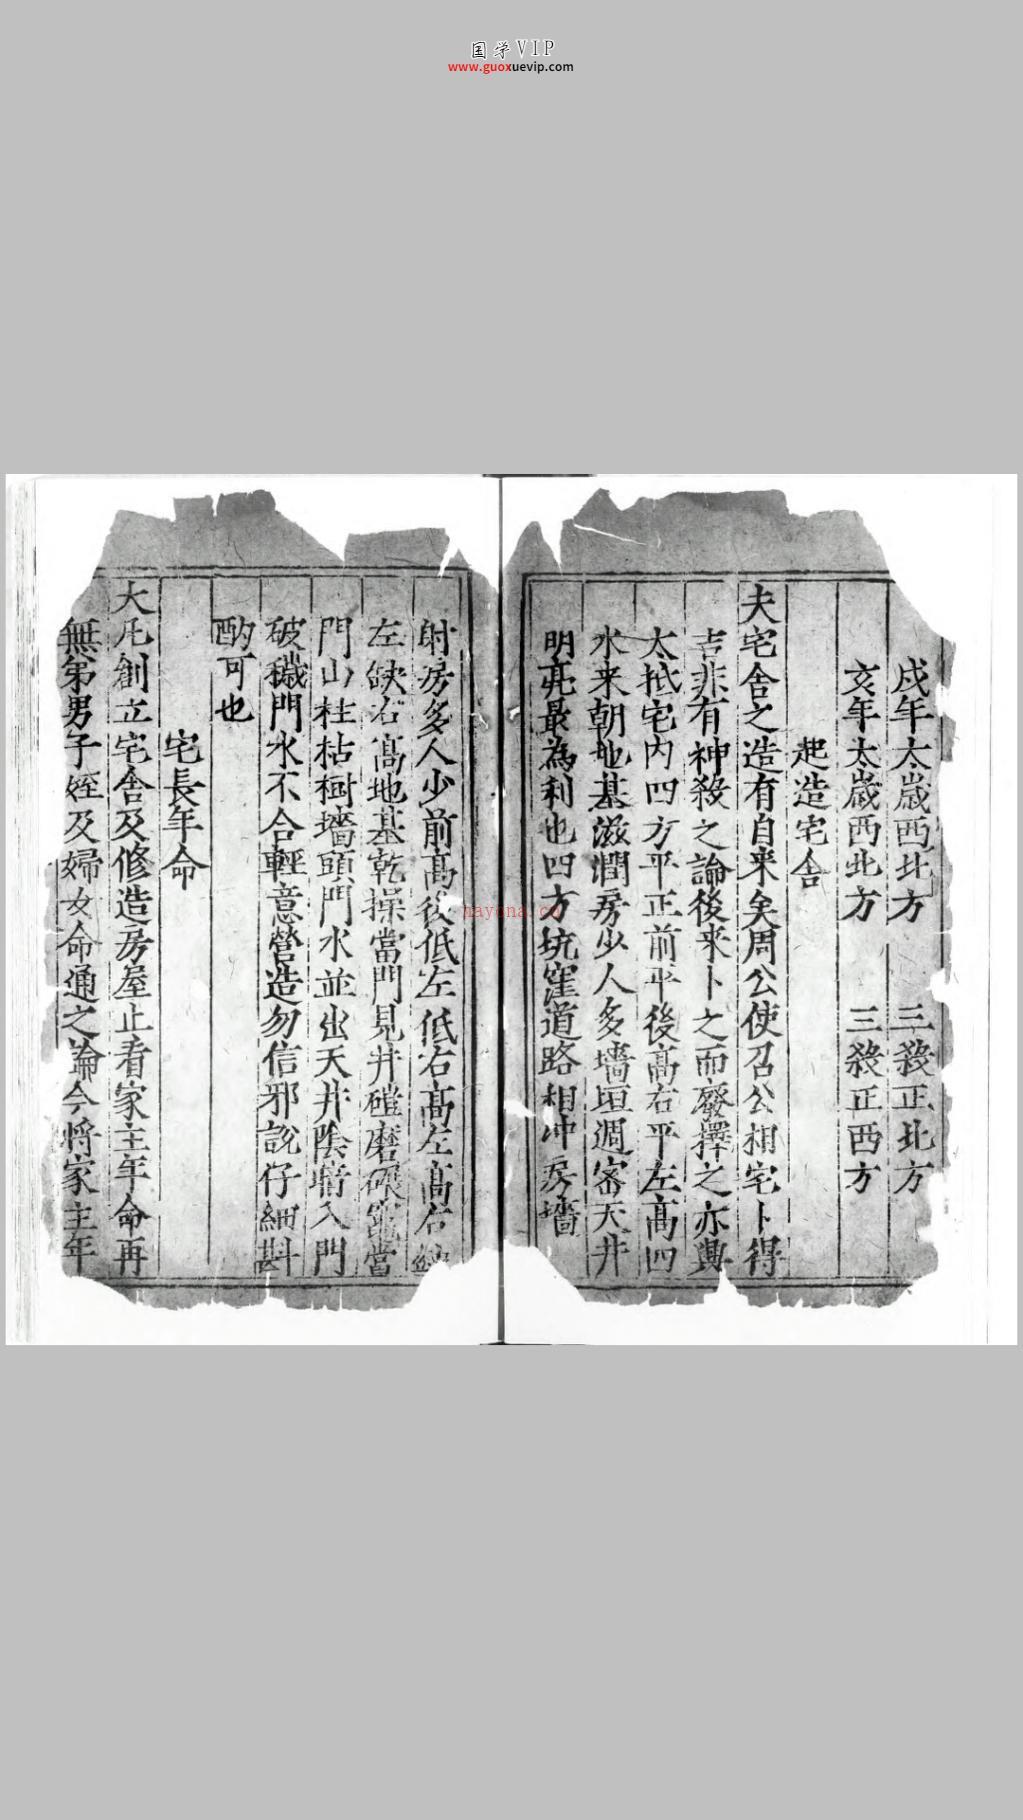 国学VIP
www.guoxuevip.com
戌年太歲西北方 三殺正北方
亥年太歲西北方 三殺正西方
起造宅舍
夫宅舍之造有自来矣周公使召公相宅卜得
吉非有神殺之論後来卜之而廢擇之亦興
太抵宅内四方平正前平後高右平左高四
水来朝地基滋潤房少人多墻垣週密天井
明亮最為利也四方坑窪道路相冲房墻
射房多人少前高後低左低右高左高右缺
左缺右高地基乾操當門見井磑磨碾窰當
門山柱枯樹墻頭門水並出天井陰暗入門
破穢門水不合輕意營造勿信邪説仔細斟
酌可也
宅長年命
大凡創立宅舍及修造房屋止看家主年命再
無弟男子姪及婦女命通之論今将家主年
nayona.cn